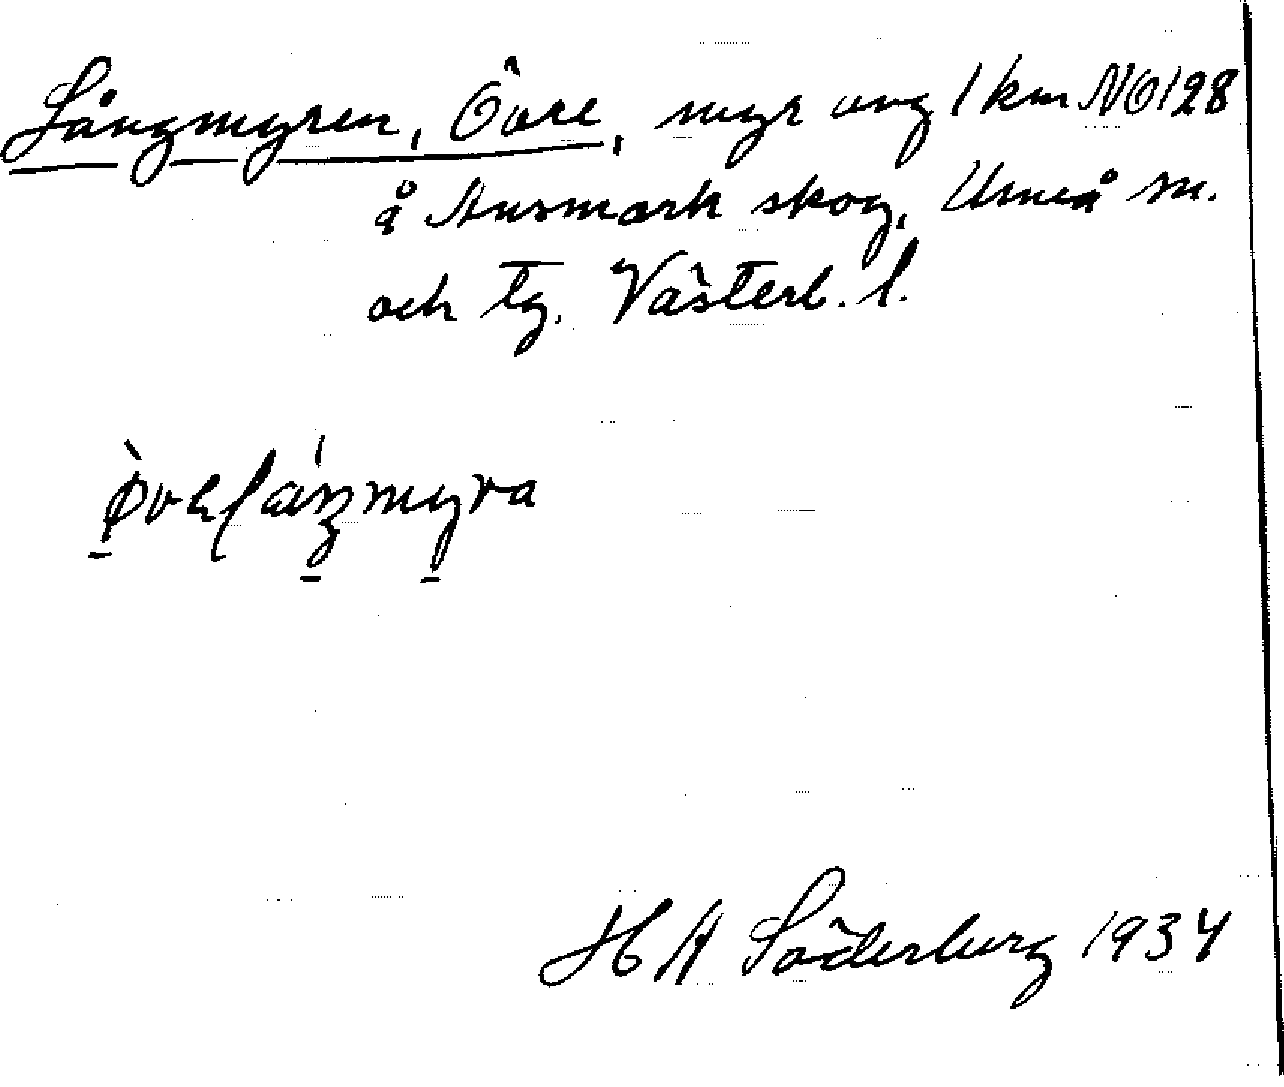 Långmyren, Övre, myr ung 1 km NO 128
å Ansmark skog, Umeå sn.
och tg. Västerb. l.
H A Söderberg 1934